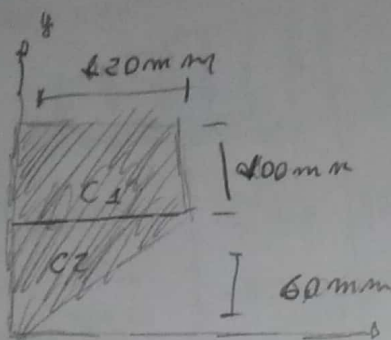 y
120mm
100mm
C1
C2
60mm